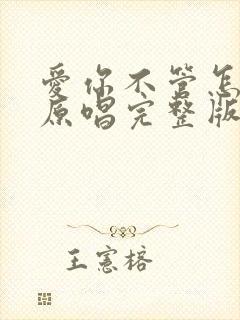 爱你不管怎
原唱完整版
王宪榕